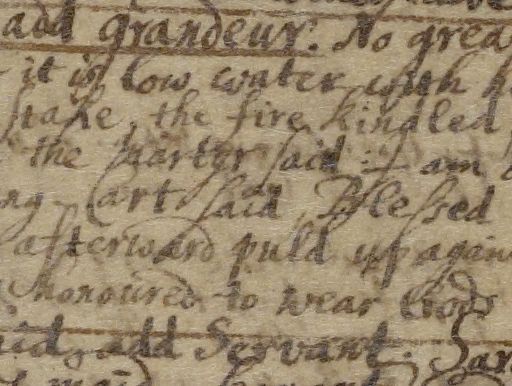 add grandeur. No grea
it is low water with h
stake, the fire kingled
the Martyr said: I am
ng Cart said, Blessed
afterward puld up again
honoured to wear Gods
add Servant. Sar